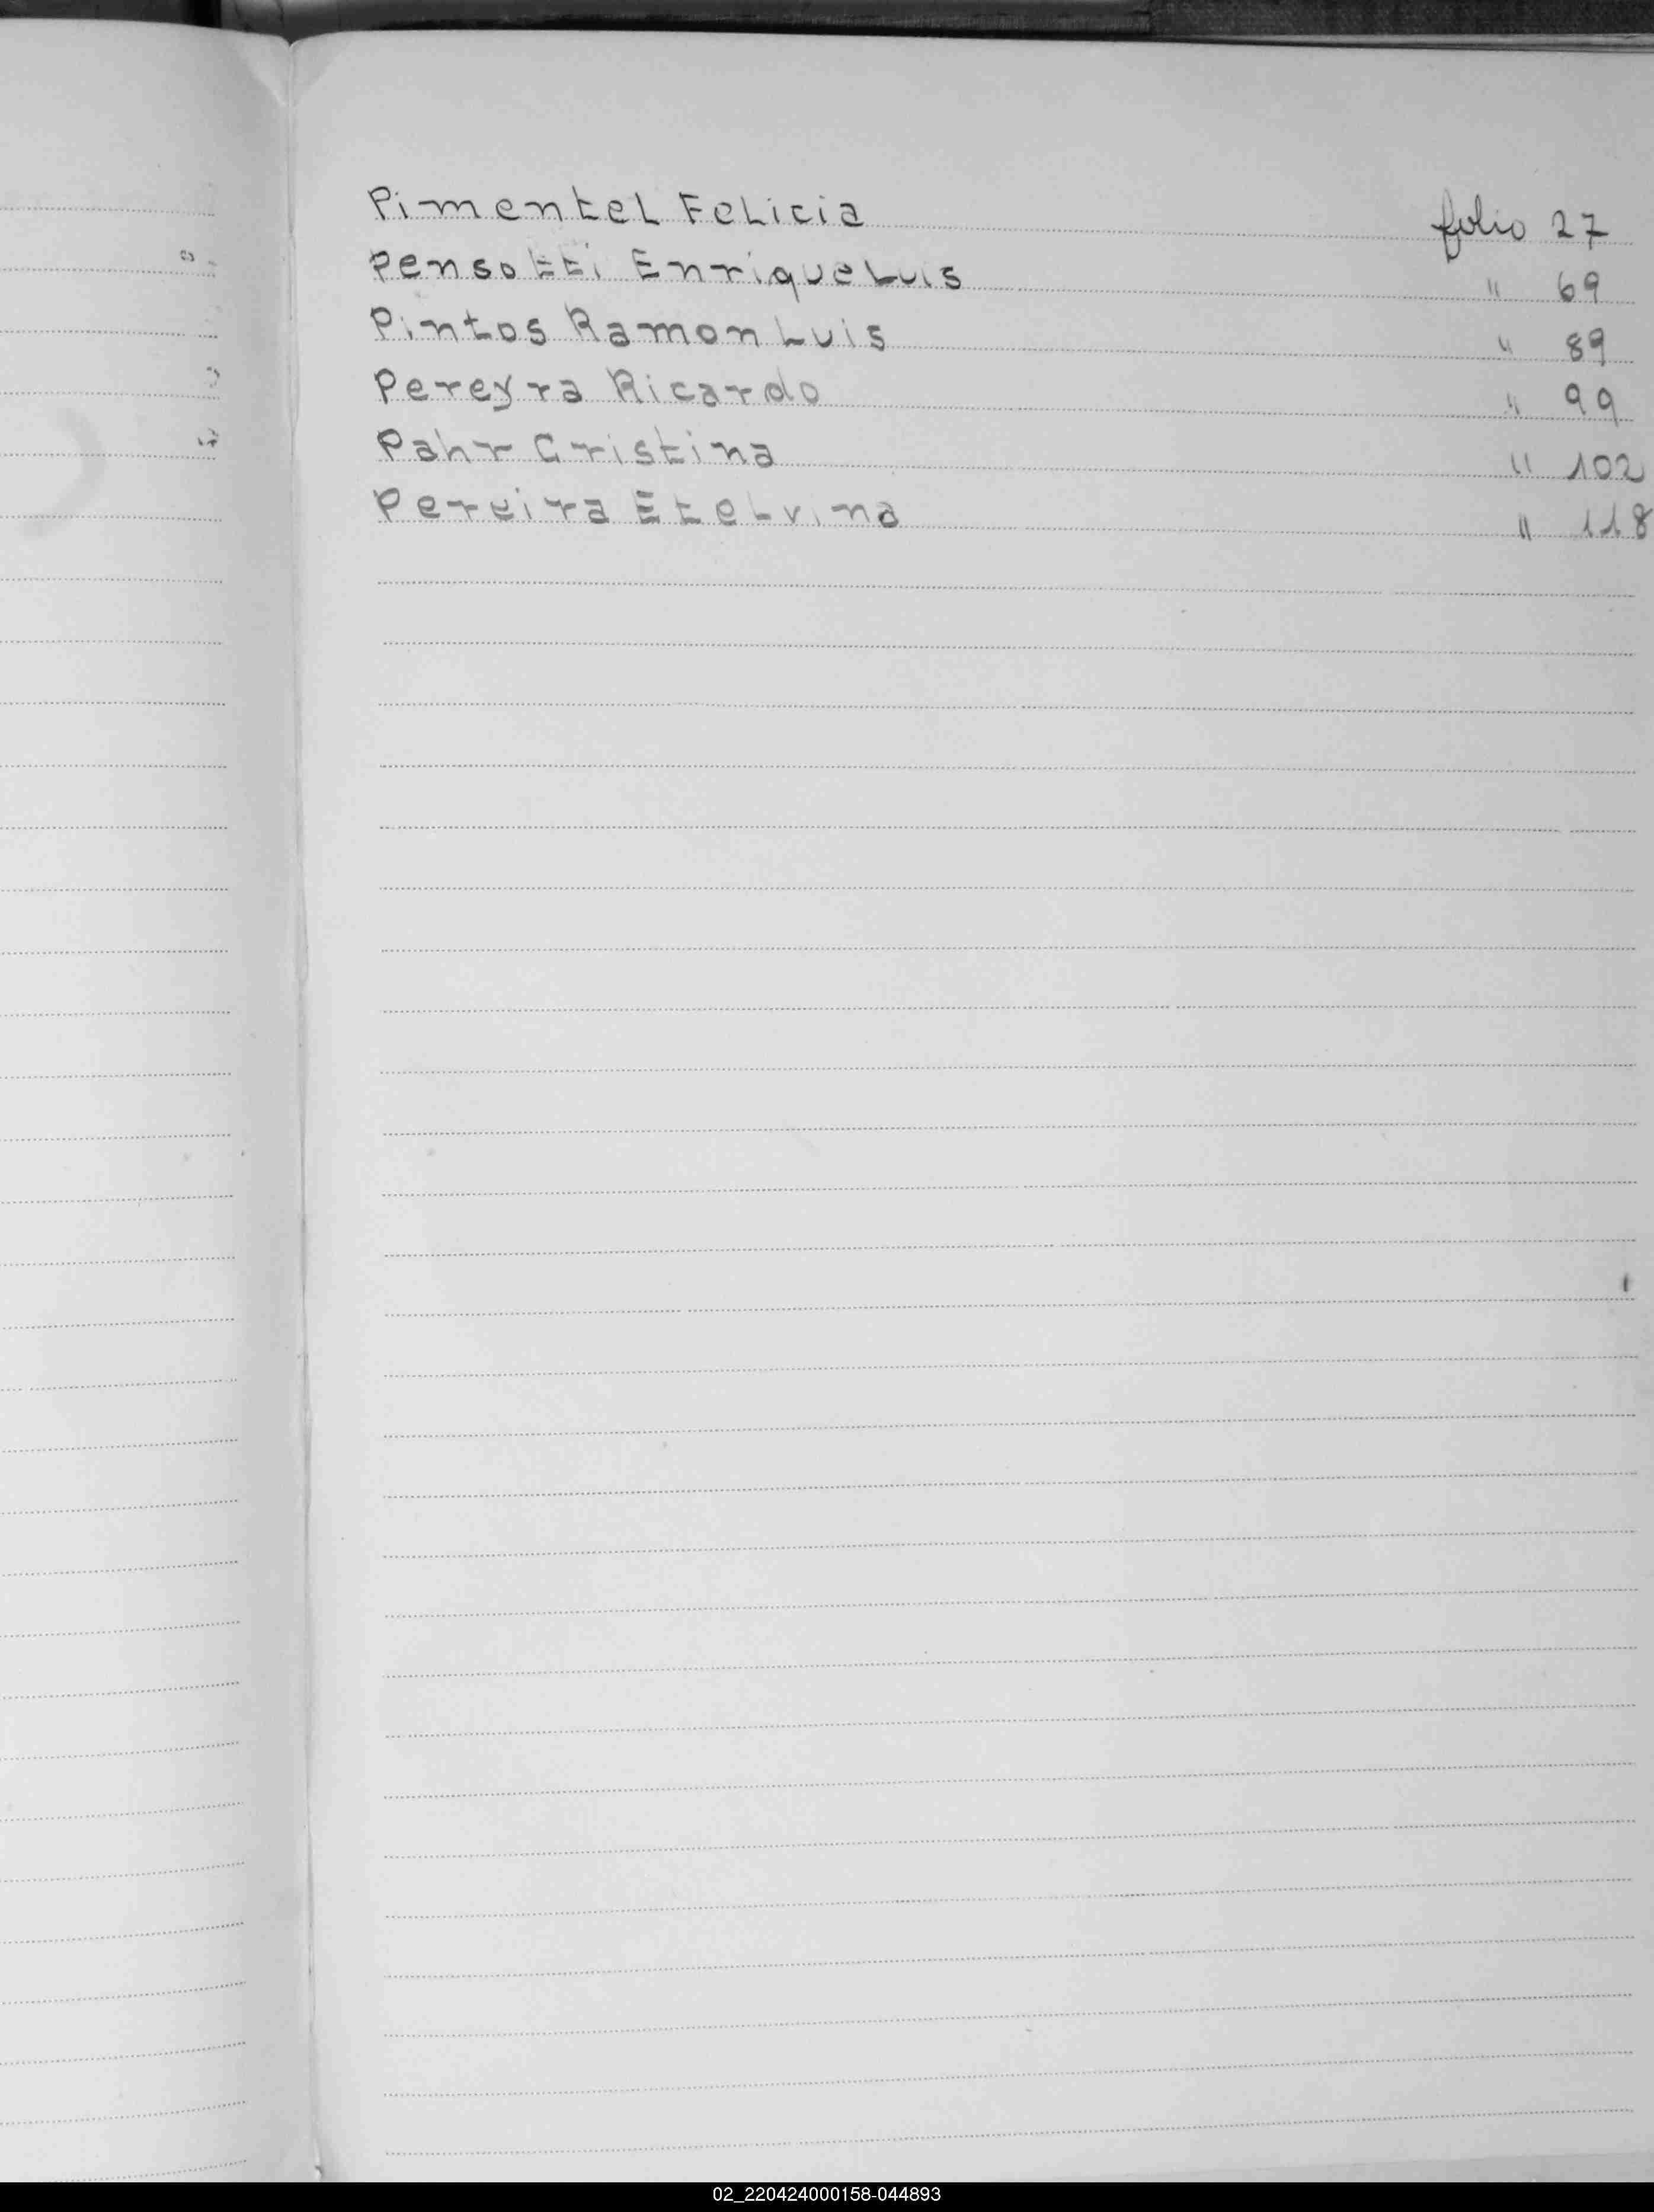 Pimentel Felicia folio 27
Pensotti Enrique Luis " 69
Pintos Ramon Luis " 89
Pereyra Ricardo " 99
Pahr Cristina " 102
Pereira Etelvina " 118
02_220424000158-044893